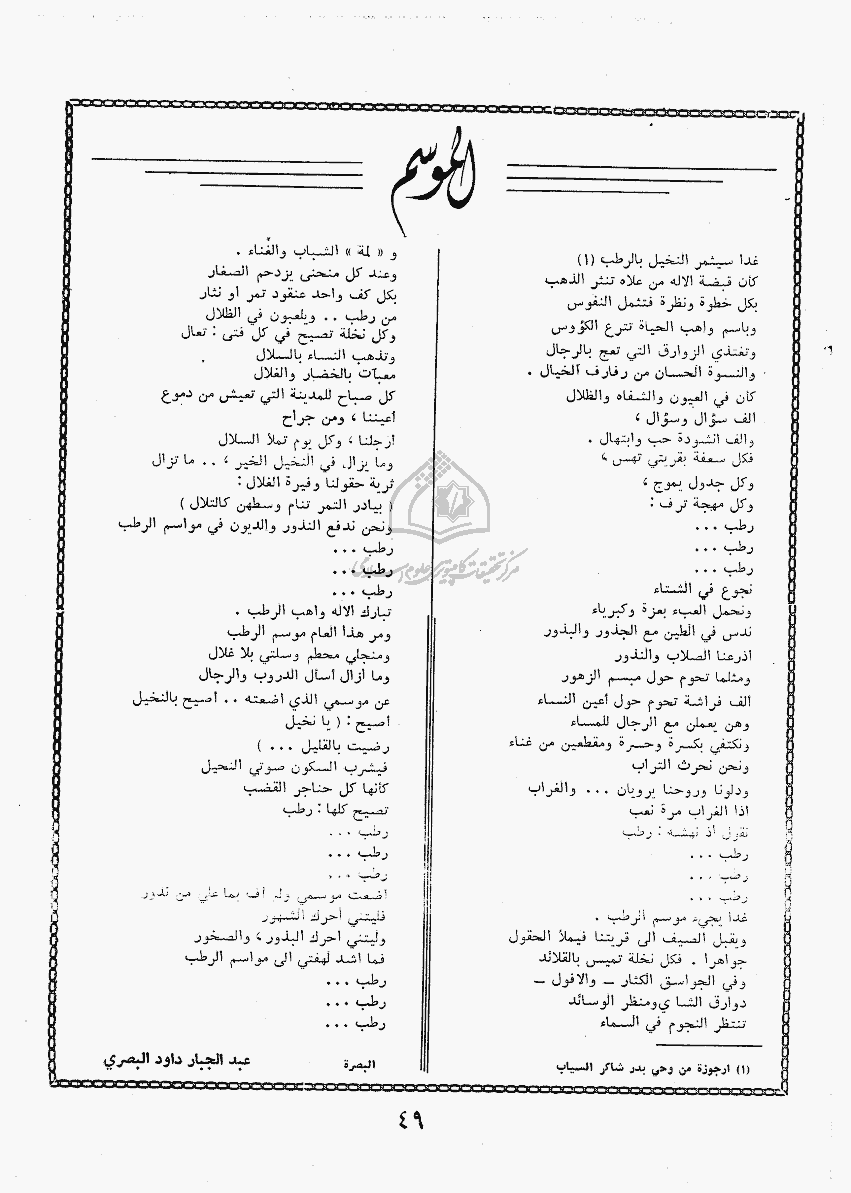 الموسم
غدا سيثمر النخيل بالرطب (١)
كان قبضة الاله من علاه تنثر الذهب
بكل خطوة ونظرة فتثمل النفوس
وباسم واهب الحياة تترع الكؤوس
وتغتذي الزوارق التي تعج بالرجال
والنسوة الحسان من رفارف الخيال .
كان في العيون والشفاه والظلال
الف سؤال وسؤال ،
والف انشودة حب وابتهال .
فكل سعفة بقريتي تهس ،
وكل جدول يموج ،
وكل مهجة ترف :
رطب ...
رطب ...
رطب ...
نجوع في الشتاء
ونحمل العبء بعزة وكبرياء
ندس في الطين مع الجذور والبذور
اذرعنا الصلاب والنذور
ومثلما تحوم حول مبسم الزهور
الف فراشة تحوم حول أعين النساء
وهن يعملن مع الرجال للمساء
ونكتفي بكسرة وحسرة ومقطعين من غناء
ونحن نحرث التراب
ودلونا وروحنا يرويان ... والغراب
اذا الغراب مرة نعب
نقول اذ نهشه : رطب
رطب ...
رطب ...
رطب ...
غدا يجيء موسم الرطب .
ويقبل الصيف الى قريتنا فيملأ الحقول
جواهرا . فكل نخلة تميس بالقلائد
وفي الجواسق الكثار – والافول –
دوارق الشاي ومنظر الوسائد
تنتظر النجوم في السماء
(١) ارجوزة من وحي بدر شاكر السياب
و « لمة » الشباب والغناء .
وعند كل منحنى يزدحم الصغار
بكل كف واحد عنقود تمر أو نثار
من رطب .. ويلعبون في الظلال
وكل نخلة تصيح في كل فتى : تعال
وتذهب النساء بالسلال
معبآت بالخضار والغلال
كل صباح للمدينة التي تعيش من دموع
أعيننا ، ومن جراح
ارجلنا ، وكل يوم تملأ السلال
وما يزال في النخيل الخير ، .. ما تزال
ثرية حقولنا وفيرة الغلال :
( بيادر التمر تنام وسطهن كالتلال )
ونحن ندفع النذور والديون في مواسم الرطب
رطب ...
رطب ...
رطب ...
تبارك الاله واهب الرطب .
ومر هذا العام موسم الرطب
ومنجلي محطم وسلتي بلا غلال
وما ازال أسأل الدروب والرجال
عن موسمي الذي اضعته .. أصيح بالنخيل
أصيح : ( يا نخيل
رضيت بالقليل ... )
فيشرب السكون صوتي النحيل
كأنها كل حناجر القضب
تصيح كلها : رطب
رطب ...
رطب ...
رطب ...
اضعت موسمي ولم أف بما علي من نذور
فليتني أحرك الشهور
وليتني أحرك البذور ، والصخور
فما اشد لهفتي الى مواسم الرطب
رطب ...
رطب ...
رطب ...
البصرة
عبد الجبار داود البصري
٤٩